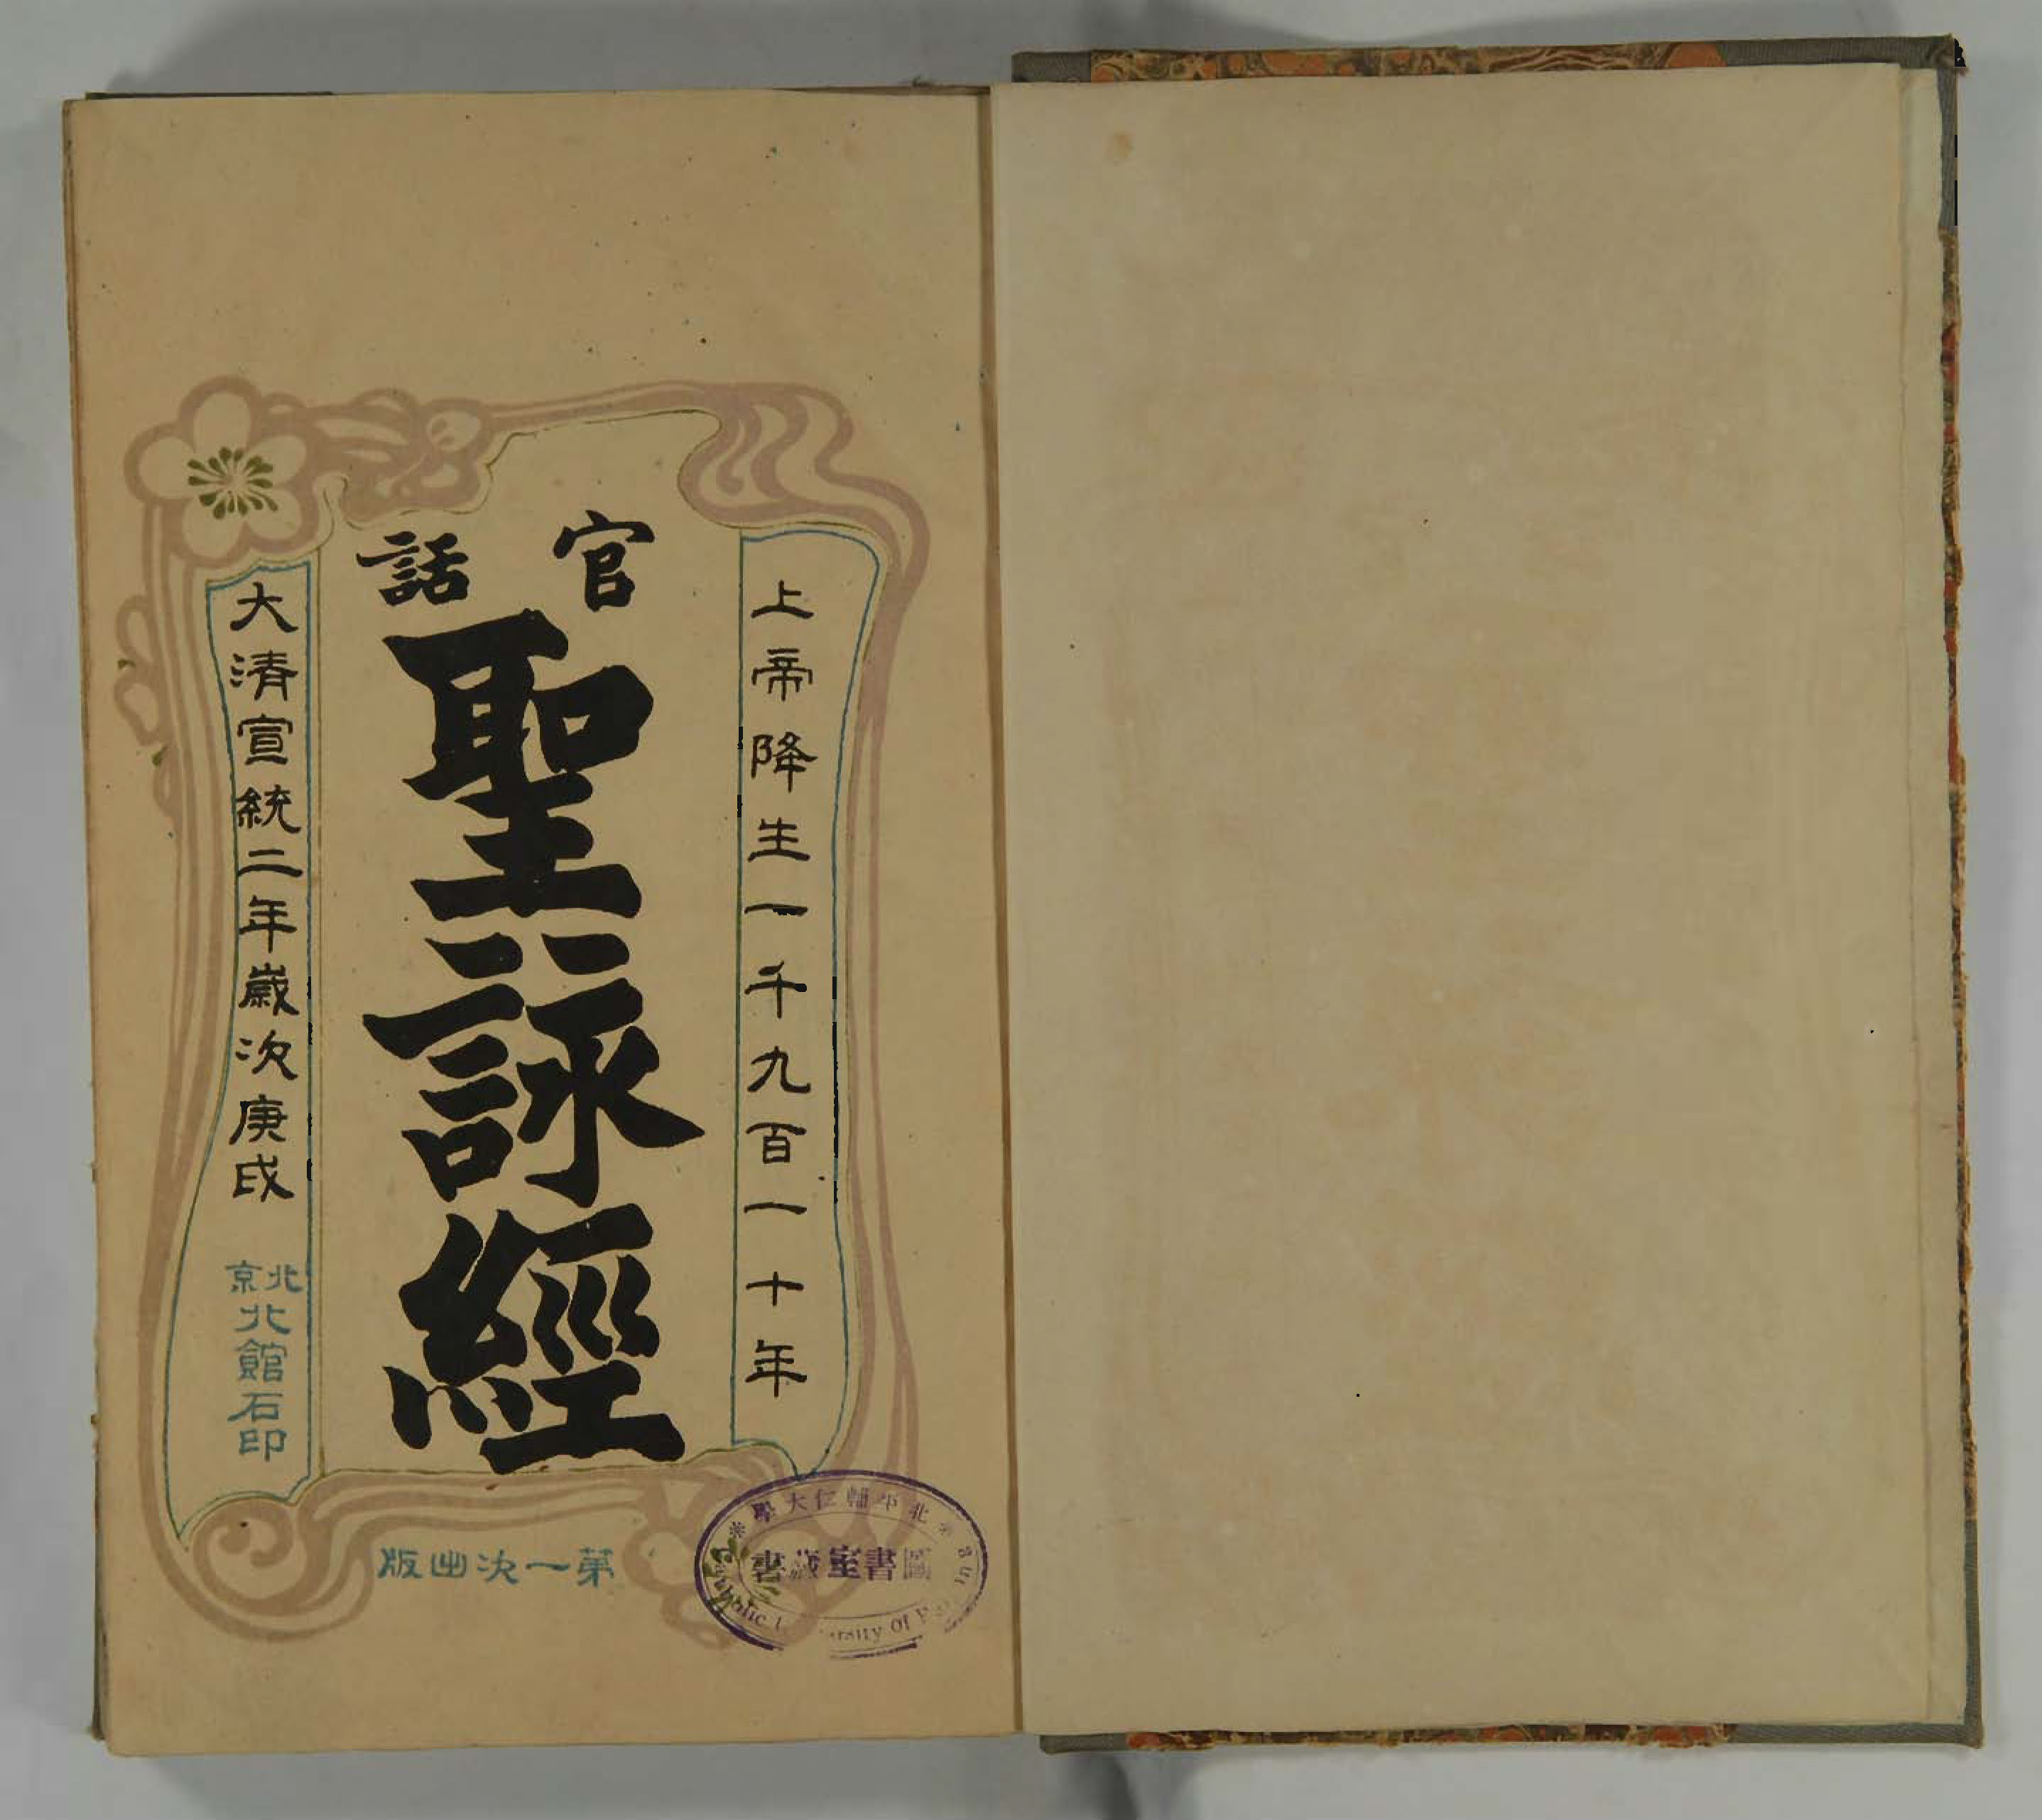 上帝降生一千九百一十年
官話
聖詠經
大清宣統二年歲次庚戌
北京
北館石印
第一次出版
北平輔仁大學
圖書室藏書